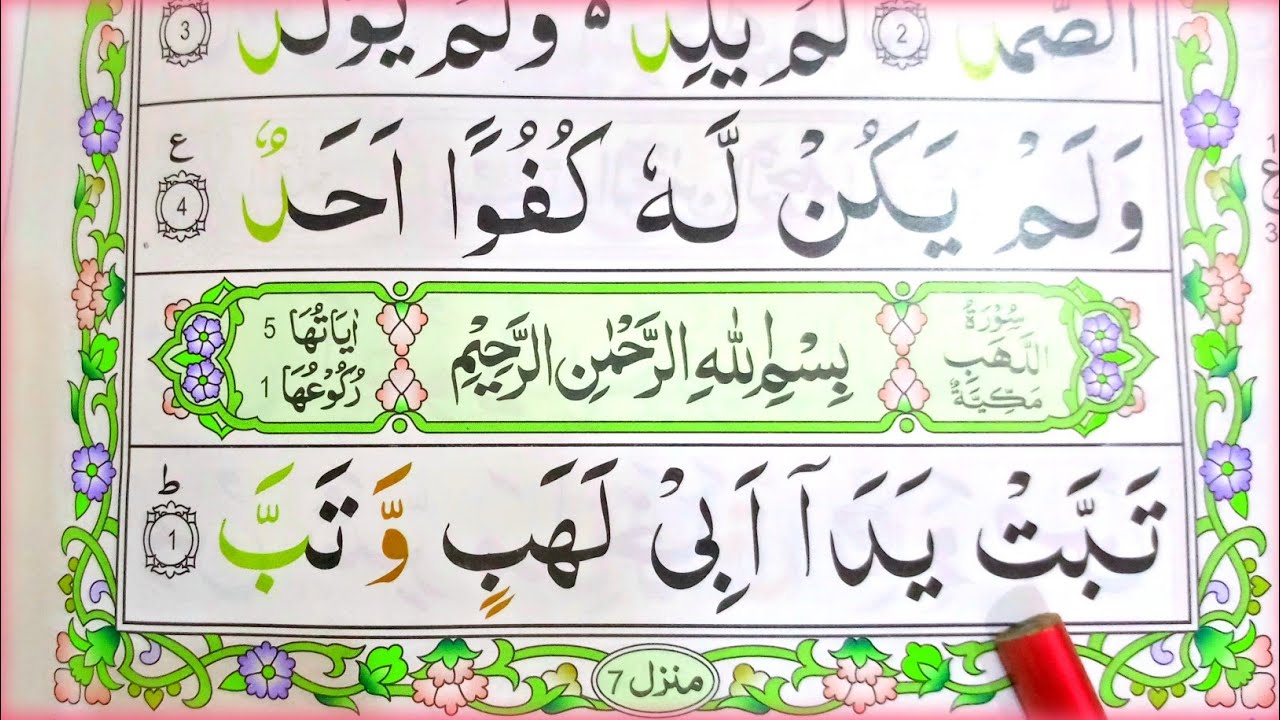 الصَّمَدُ 2 لَمْ يَلِدْ ۵ وَلَمْ يُوْلَدْ 3
وَلَمْ يَكُنْ لَّهٗ كُفُوًا اَحَدٌ 4 ع
سُوْرَةُ اللَّهَبِ مَكِّيَّةٌ
بِسْمِ اللهِ الرَّحْمٰنِ الرَّحِيْمِ
اٰيَاتُهَا 5
رُكُوْعُهَا 1
تَبَّتْ يَدَآ اَبِيْ لَهَبٍ وَّ تَبَّ 1 ط
منزل 7